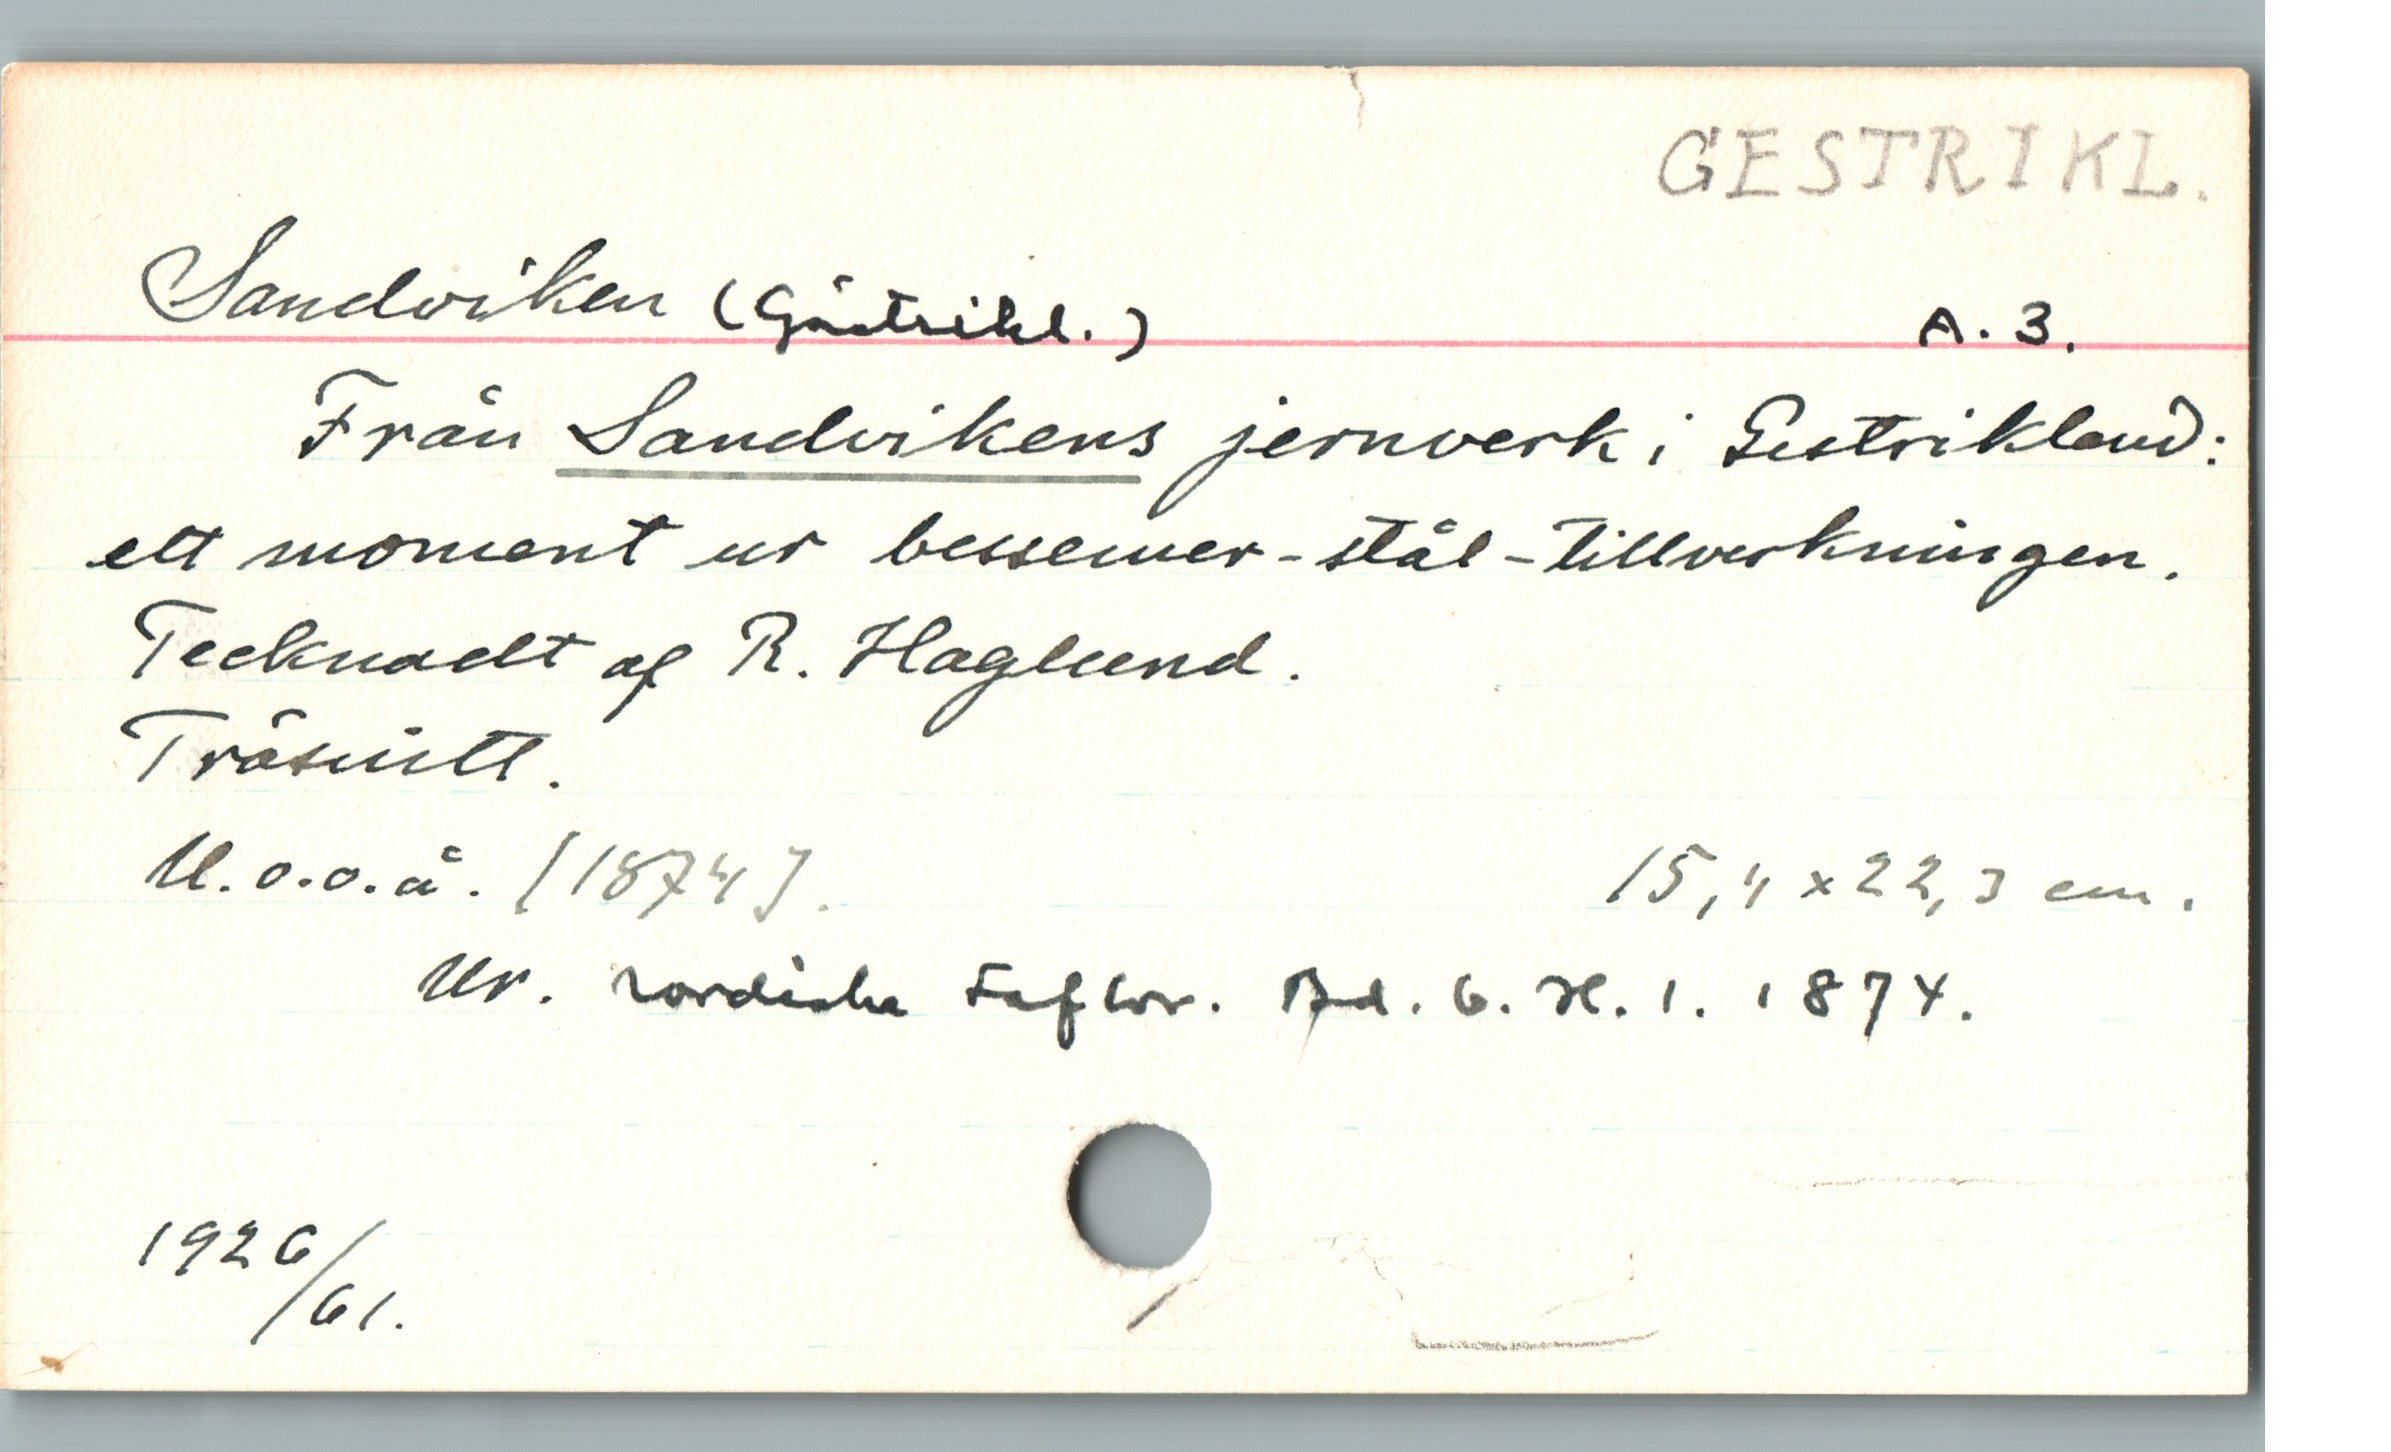 GESTRIKL.
Sandviken (Gästrikl.) A. 3.
Från Sandvikens jernverk i Gestrikland:
ett moment ur bessemer-stål-tillverkningen.
Tecknadt af R. Haglund.
Träsnitt.
U.o.o.å. [1874]. 15,4 x 22,3 cm.
Ur. Nordiska Taflor. Bd. 6. H. 1. 1874.
1926/61.